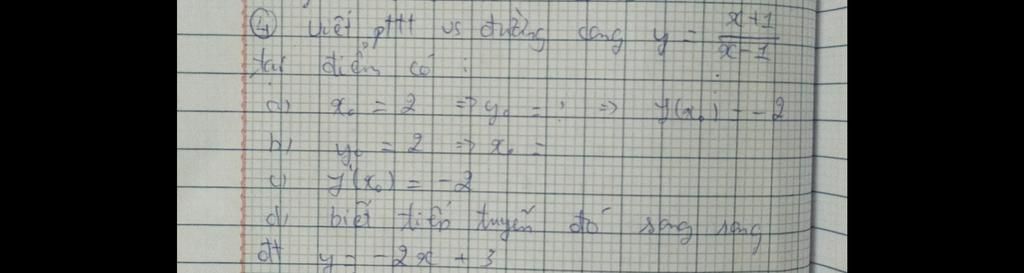 ④ Viết pttt vs đường cong y = x+1/x-1
tại điểm có :
a) x₀ = 2 => y₀ = ? => y'(x₀) = -2
b) y₀ = 2 => x₀ =
c) y'(x₀) = -2
d) biết tiếp tuyến đó song song
đt y = -2x + 3